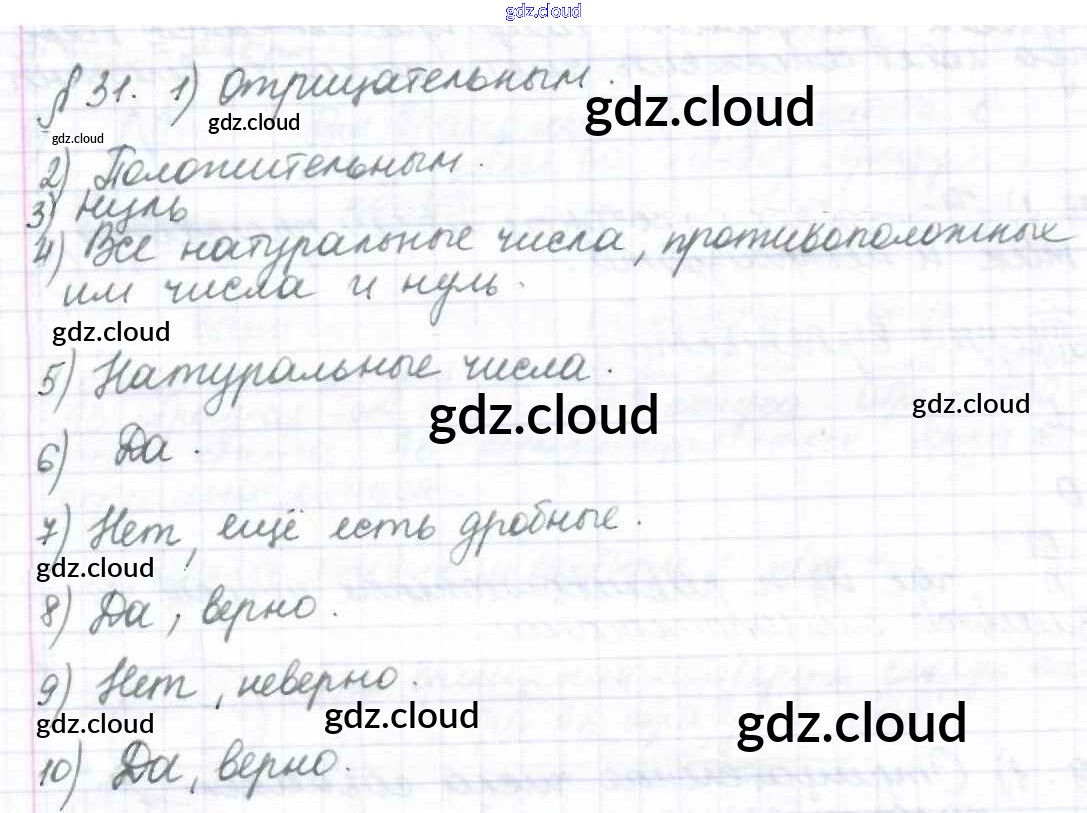 gdz.cloud
§ 31. 1) Отрицательным.
gdz.cloud
gdz.cloud
gdz.cloud
2) Положительным.
3) нуль
4) Все натуральные числа, противоположные
им числа и нуль.
gdz.cloud
5) Натуральные числа.
gdz.cloud
gdz.cloud
6) Да.
7) Нет, ещё есть дробные.
gdz.cloud
8) Да, верно.
9) Нет, неверно.
gdz.cloud
gdz.cloud
gdz.cloud
10) Да, верно.